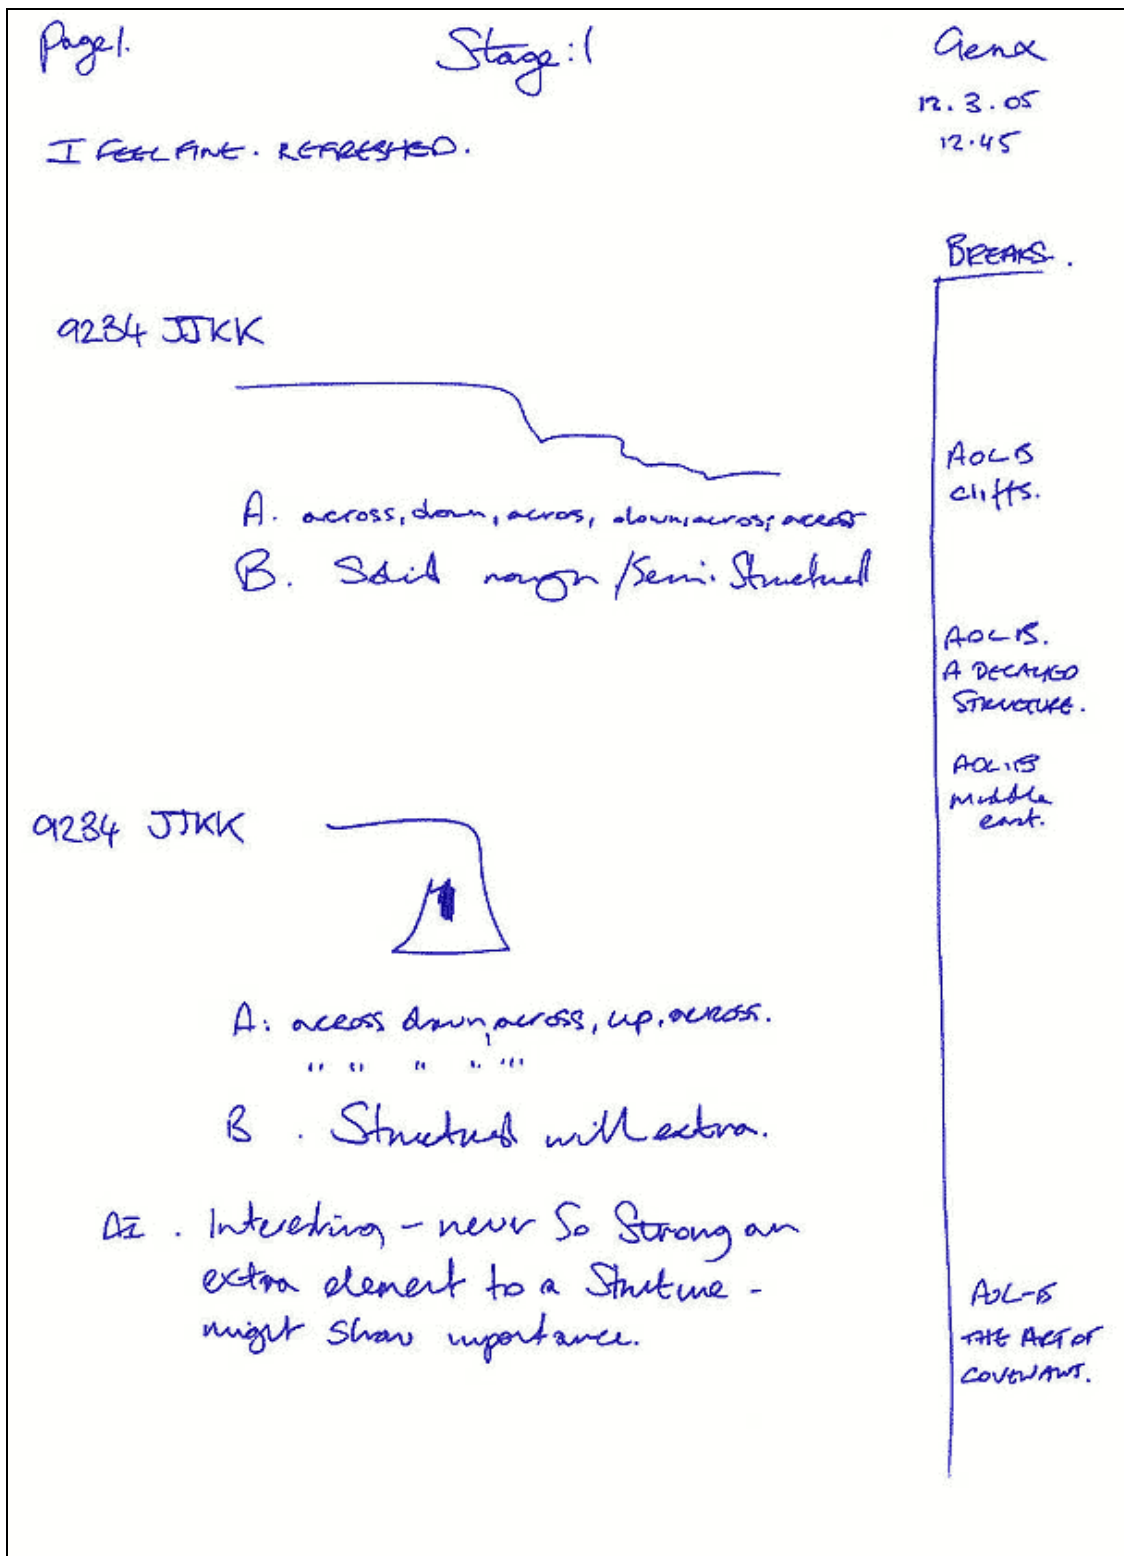 Page 1.
Stage: 1
Genα
12.3.05
12.45
I FEEL FINE. REFRESHED.
BREAKS.
9234 JJKK
AOL-B
cliffs.
A. across, down, acros, down, acros, across
B. Solid rough / Semi. Structural
AOL B.
A DECAYED
STRUCTURE.
AOL-B
middle
east.
9234 JJKK
A: across down, across, up, across.
" " " " " "
B. Structural with extra.
AI. Interesting - never so strong an
extra element to a Structure -
might show importance.
AOL-B
THE ARC OF
COVENANT.